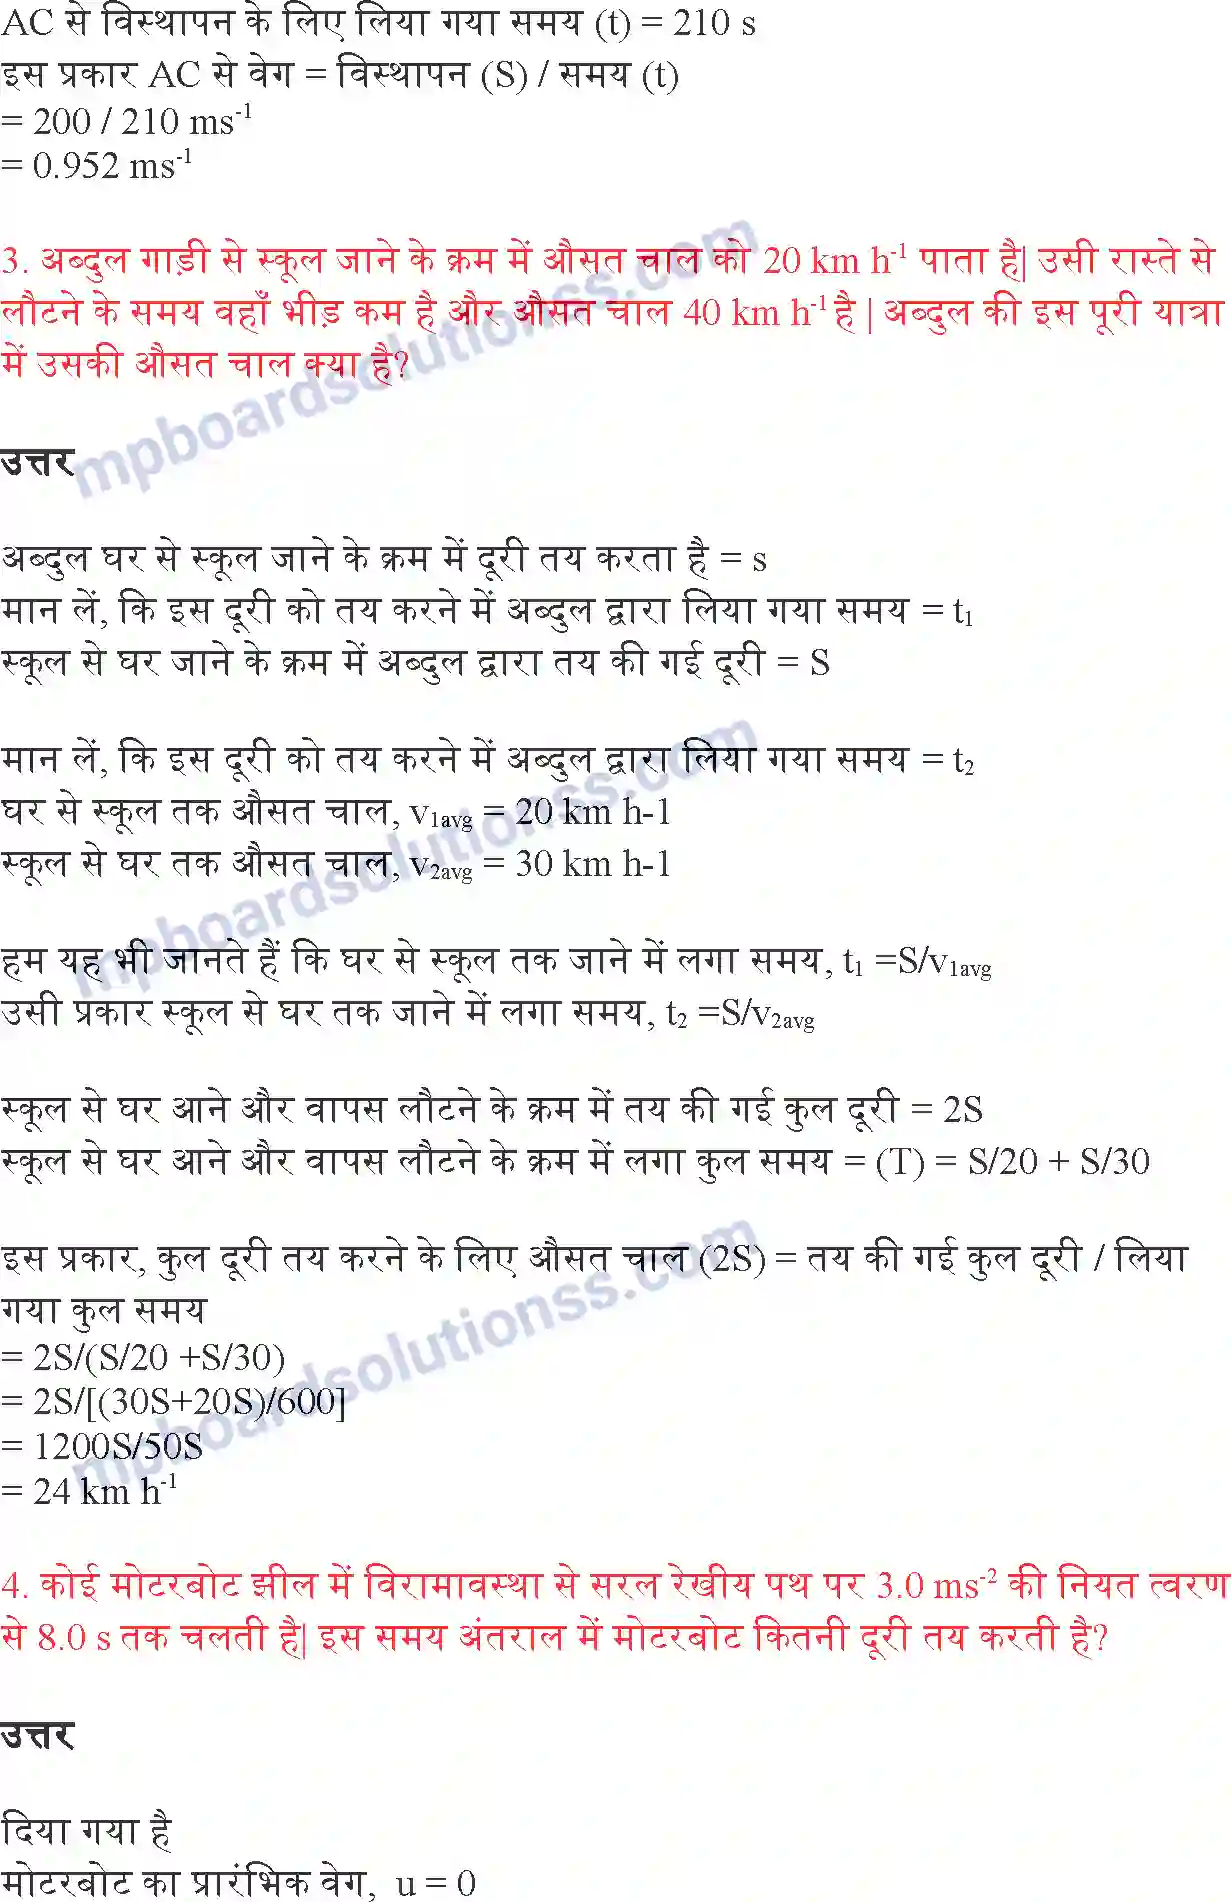 AC से विस्थापन के लिए लिया गया समय (t) = 210 s
इस प्रकार AC से वेग = विस्थापन (S) / समय (t)
= 200 / 210 ms⁻¹
= 0.952 ms⁻¹
3. अब्दुल गाड़ी से स्कूल जाने के क्रम में औसत चाल को 20 km h⁻¹ पाता है| उसी रास्ते से
लौटने के समय वहाँ भीड़ कम है और औसत चाल 40 km h⁻¹ है | अब्दुल की इस पूरी यात्रा
में उसकी औसत चाल क्या है?
mpboardsolutionss.com
उत्तर
अब्दुल घर से स्कूल जाने के क्रम में दूरी तय करता है = s
मान लें, कि इस दूरी को तय करने में अब्दुल द्वारा लिया गया समय = t₁
स्कूल से घर जाने के क्रम में अब्दुल द्वारा तय की गई दूरी = S
मान लें, कि इस दूरी को तय करने में अब्दुल द्वारा लिया गया समय = t₂
घर से स्कूल तक औसत चाल, v1avg = 20 km h-1
स्कूल से घर तक औसत चाल, v2avg = 30 km h-1
mpboardsolutionss.com
हम यह भी जानते हैं कि घर से स्कूल तक जाने में लगा समय, t₁ =S/v1avg
उसी प्रकार स्कूल से घर तक जाने में लगा समय, t₂ =S/v2avg
स्कूल से घर आने और वापस लौटने के क्रम में तय की गई कुल दूरी = 2S
स्कूल से घर आने और वापस लौटने के क्रम में लगा कुल समय = (T) = S/20 + S/30
इस प्रकार, कुल दूरी तय करने के लिए औसत चाल (2S) = तय की गई कुल दूरी / लिया
गया कुल समय
= 2S/(S/20 +S/30)
= 2S/[(30S+20S)/600]
= 1200S/50S
= 24 km h⁻¹
mpboardsolutionss.com
4. कोई मोटरबोट झील में विरामावस्था से सरल रेखीय पथ पर 3.0 ms⁻² की नियत त्वरण
से 8.0 s तक चलती है| इस समय अंतराल में मोटरबोट कितनी दूरी तय करती है?
उत्तर
दिया गया है
मोटरबोट का प्रारंभिक वेग, u = 0